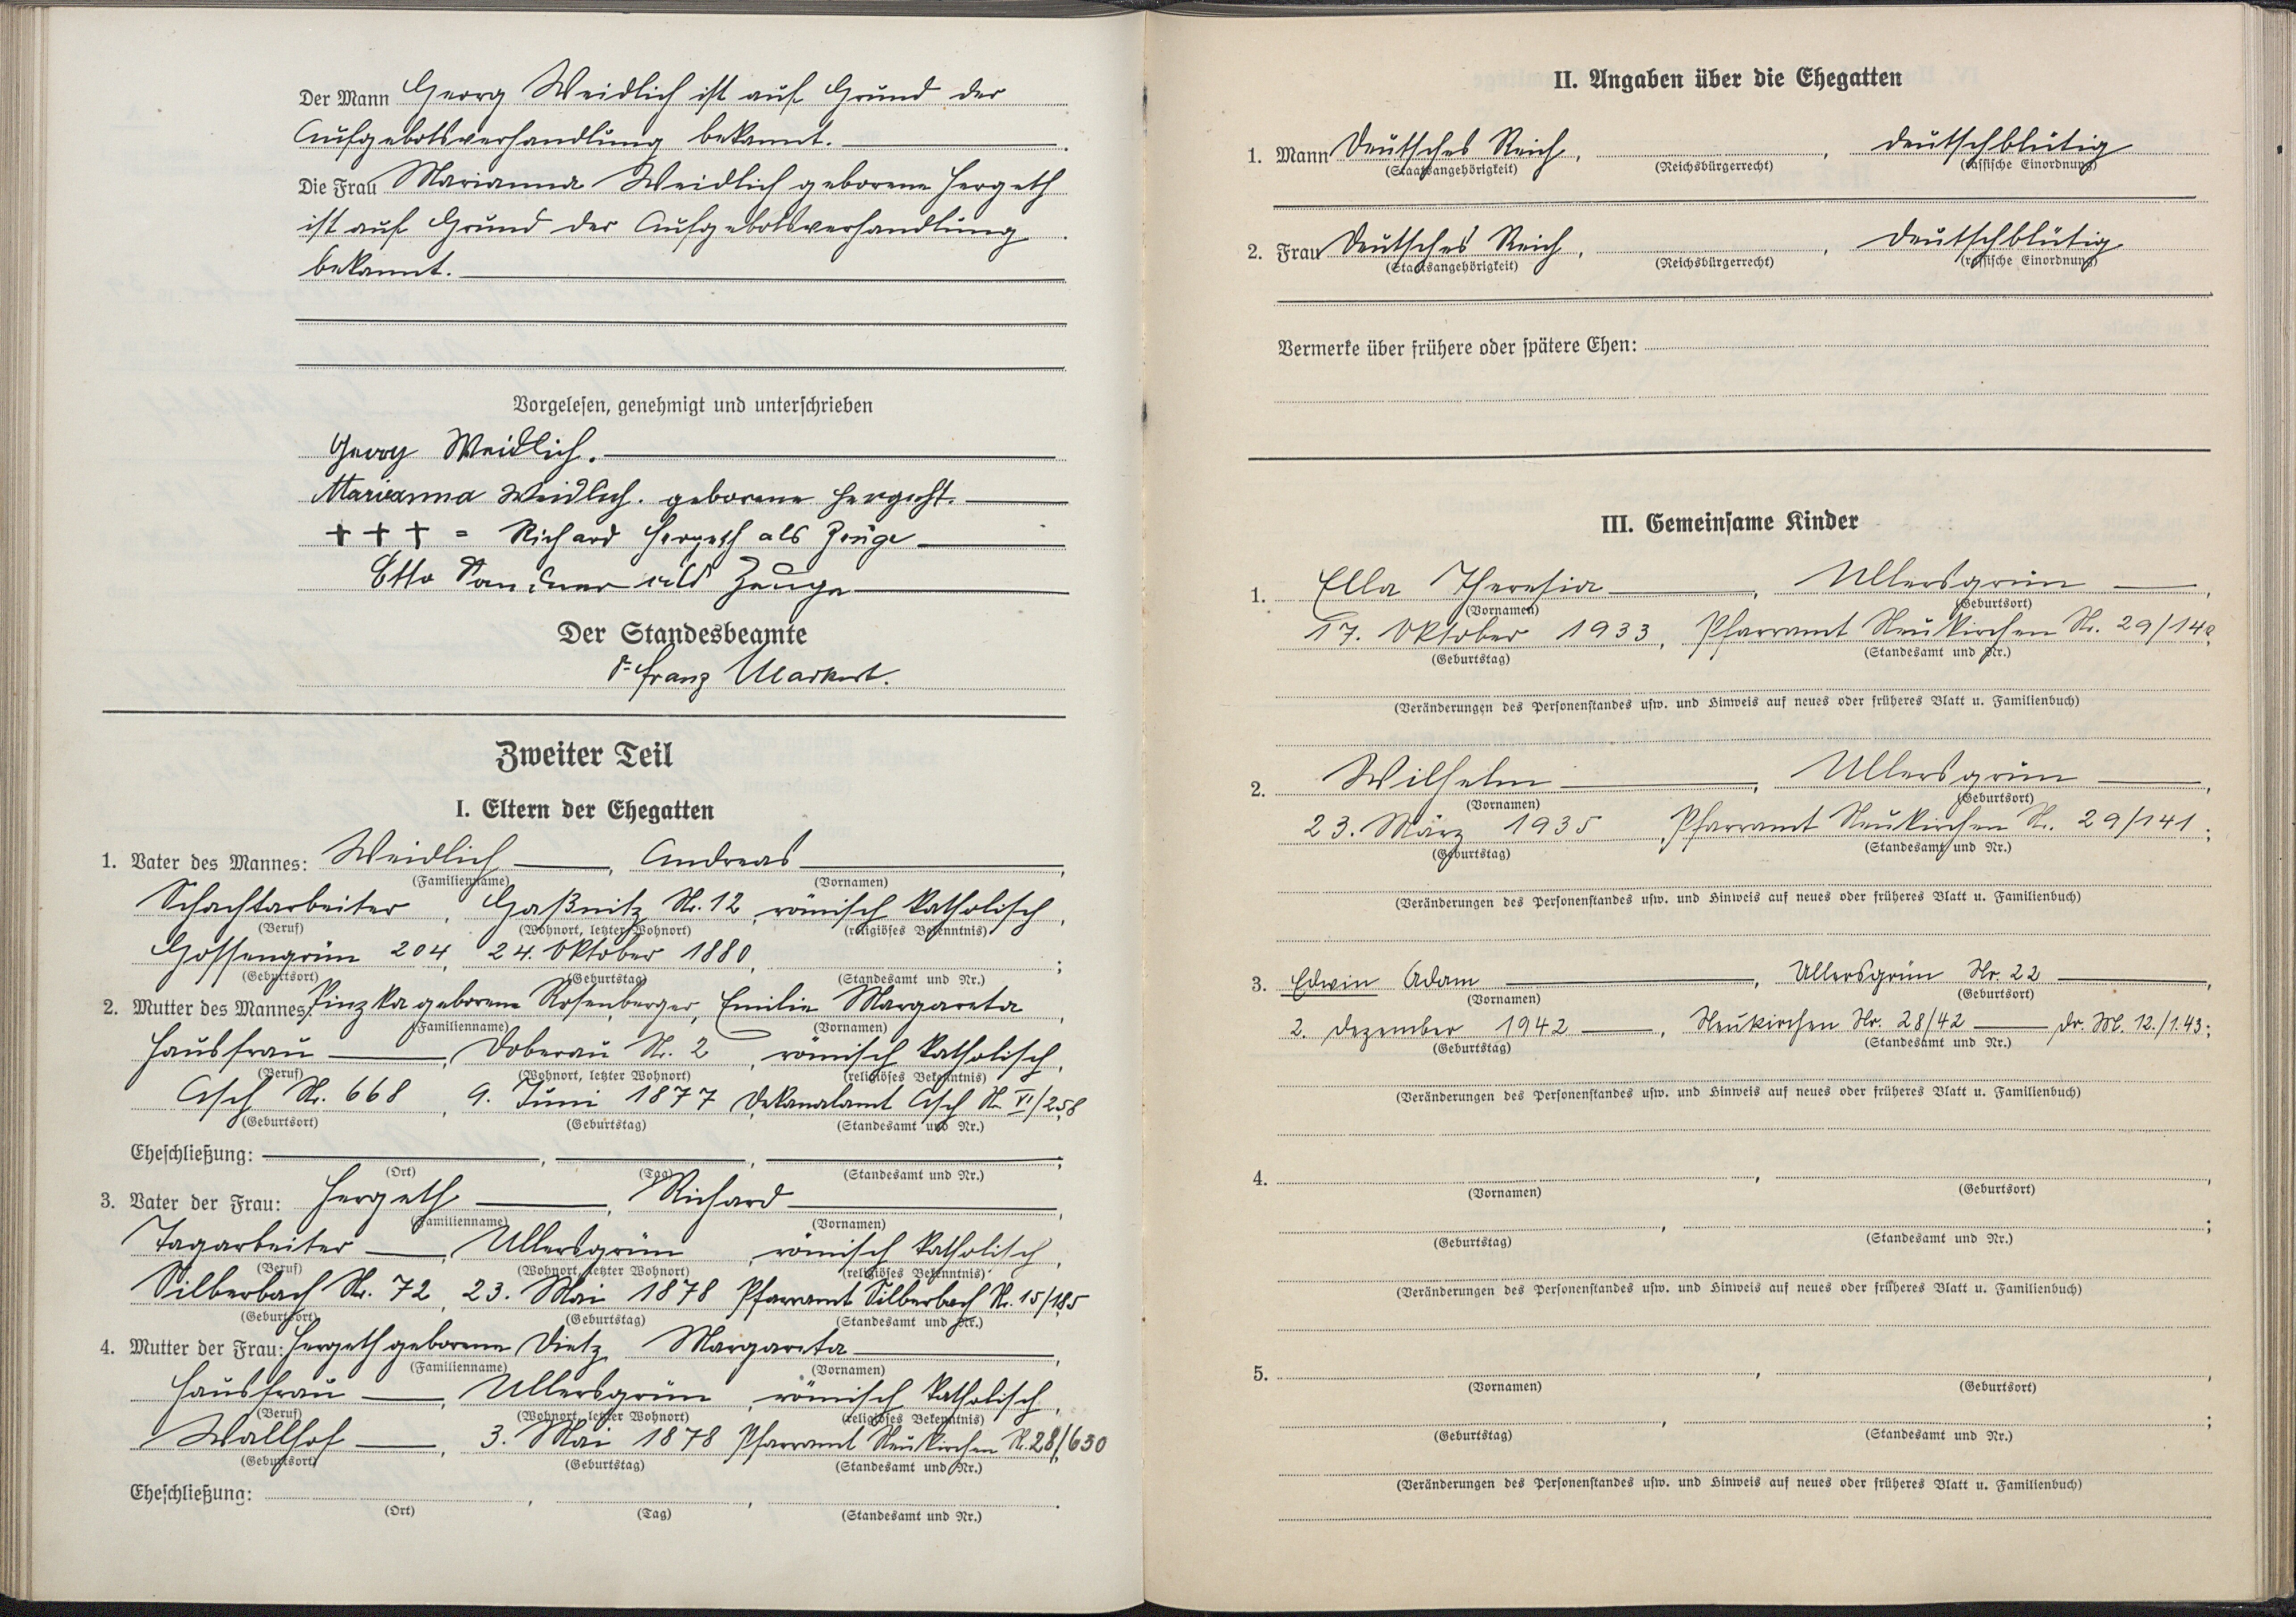 Der Mann Georg Weidlich ist auf Grund der
Aufgebotsverhandlung bekannt.
Die Frau Marianna Weidlich geborene Hergeth
ist auf Grund der Aufgebotsverhandlung
bekannt.
Vorgelesen, genehmigt und unterschrieben
Georg Weidlich.
Marianna Weidlich. geborene Hergeht.
+ + + = Richard Hergeth als Zeuge
Otto als Zeuge
Der Standesbeamte
Franz Markert.
Zweiter Teil
I. Eltern der Ehegatten
1. Vater des Mannes: Weidlich, Andreas,
(Familienname) (Vornamen)
Schachtarbeiter, Gaßnitz Nr. 12, römisch katholisch,
(Beruf) (Wohnort, letzter Wohnort) (religiöses Bekenntnis)
Gossengrün 204, 24. Oktober 1880, ;
(Geburtsort) (Geburtstag) (Standesamt und Nr.)
2. Mutter des Mannes: Pinzka geborene Rosenberger, Emilie Margareta,
(Familienname) (Vornamen)
Hausfrau, Doberau Nr. 2, römisch katholisch,
(Beruf) (Wohnort, letzter Wohnort) (religiöses Bekenntnis)
Asch Nr. 668, 9. Juni 1877, Dekanalamt Asch Nr. VI/258
(Geburtsort) (Geburtstag) (Standesamt und Nr.)
Eheschließung: , , ;
(Ort) (Tag) (Standesamt und Nr.)
3. Vater der Frau: Hergeth, Richard,
(Familienname) (Vornamen)
Tagarbeiter, Ullersgrün, römisch katholisch,
(Beruf) (Wohnort, letzter Wohnort) (religiöses Bekenntnis)
Silberbach Nr. 72, 23. Mai 1878 Pfarramt Silberbach Nr. 15/185
(Geburtsort) (Geburtstag) (Standesamt und Nr.)
4. Mutter der Frau: Hergeth geborene Dietz, Margareta,
(Familienname) (Vornamen)
Hausfrau, Ullersgrün, römisch katholisch,
(Beruf) (Wohnort, letzter Wohnort) (religiöses Bekenntnis)
Wallhof, 3. Mai 1878 Pfarramt Neukirchen N. 28/630
(Geburtsort) (Geburtstag) (Standesamt und Nr.)
Eheschließung: , , .
(Ort) (Tag) (Standesamt und Nr.)
II. Angaben über die Ehegatten
1. Mann Deutsches Reich, , deutschblütig
(Staatsangehörigkeit) (Reichsbürgerrecht) (rassische Einordnung)
2. Frau Deutsches Reich, , deutschblütig
(Staatsangehörigkeit) (Reichsbürgerrecht) (rassische Einordnung)
Vermerke über frühere oder spätere Ehen:
III. Gemeinsame Kinder
1. Ella Theresia, Ullersgrün,
(Vornamen) (Geburtsort)
17. Oktober 1933, Pfarramt Neukirchen Nr. 29/140
(Geburtstag) (Standesamt und Nr.)
(Veränderungen des Personenstandes usw. und Hinweis auf neues oder früheres Blatt u. Familienbuch)
2. Wilhelm, Ullersgrün,
(Vornamen) (Geburtsort)
23. März 1935, Pfarramt Neukirchen Nr. 29/141;
(Geburtstag) (Standesamt und Nr.)
(Veränderungen des Personenstandes usw. und Hinweis auf neues oder früheres Blatt u. Familienbuch)
3. Edwin Adam, Ullersgrün Nr. 22,
(Vornamen) (Geburtsort)
2. Dezember 1942, Neukirchen Nr. 28/42 Dr. M. 12./1.43;
(Geburtstag) (Standesamt und Nr.)
(Veränderungen des Personenstandes usw. und Hinweis auf neues oder früheres Blatt u. Familienbuch)
4. , ,
(Vornamen) (Geburtsort)
, ;
(Geburtstag) (Standesamt und Nr.)
(Veränderungen des Personenstandes usw. und Hinweis auf neues oder früheres Blatt u. Familienbuch)
5. , ,
(Vornamen) (Geburtsort)
, ;
(Geburtstag) (Standesamt und Nr.)
(Veränderungen des Personenstandes usw. und Hinweis auf neues oder früheres Blatt u. Familienbuch)